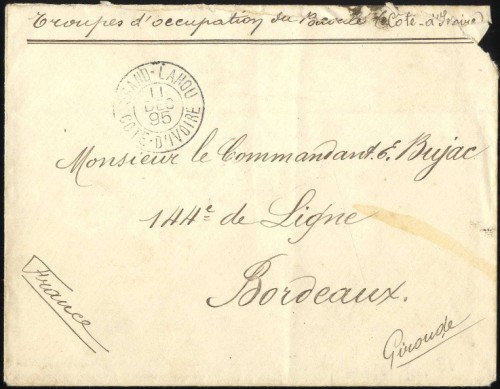 Troupes d'occupation du Baoulé (Côte-d'Ivoire)
GRAND-LAHOU
11
DEC
95
COTE-D'IVOIRE
Monsieur le Commandant E. Bujac
144e de Ligne
Bordeaux.
France
Gironde